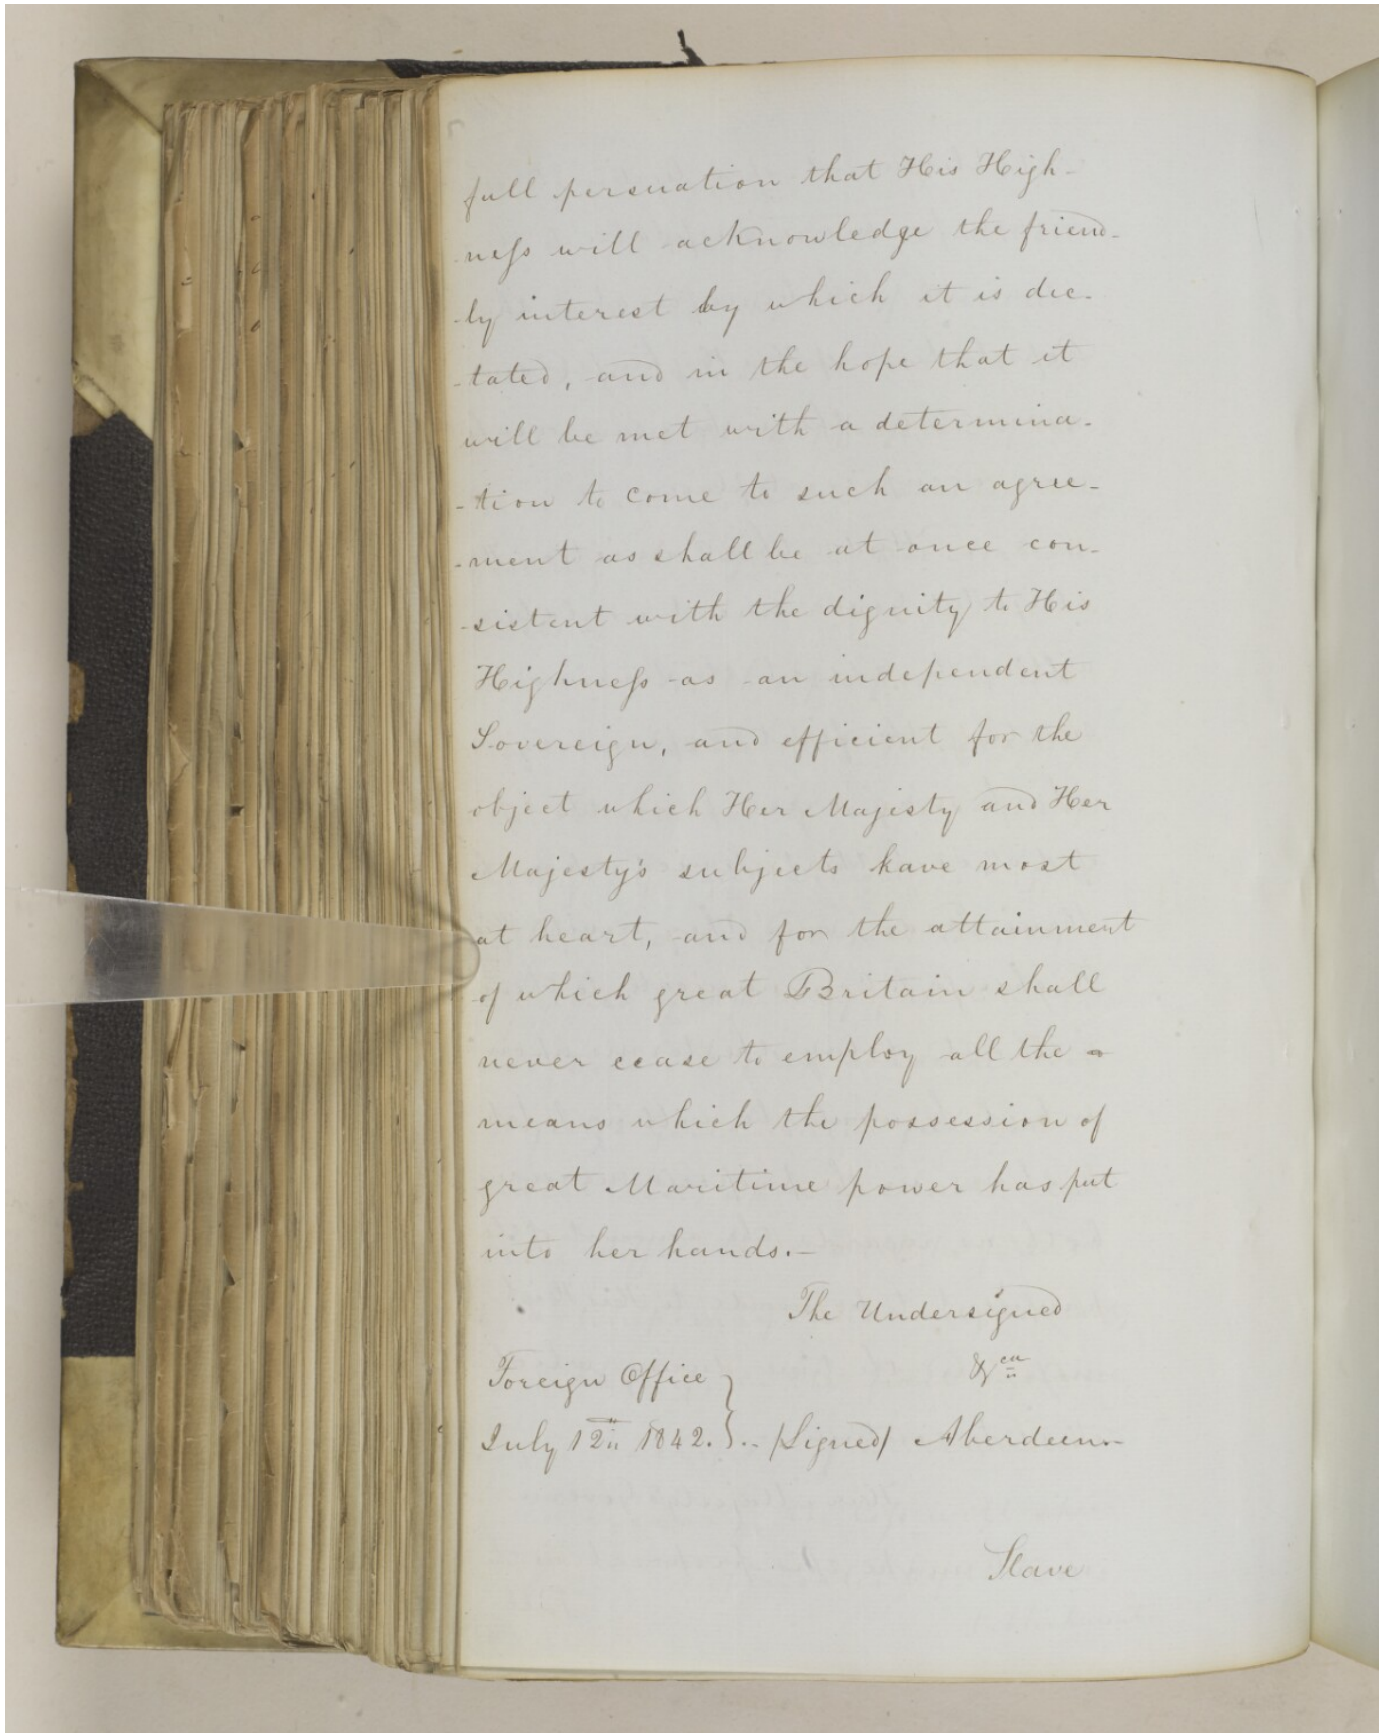 full persuation that His High-
neſs will acknowledge the friend-
-ly interest by which it is dic-
-tated, and in the hope that it
will be met with a determina-
-tion to come to such an agree-
-ment as shall be at once con-
-sistent with the dignity to His
Highneſs as an independent
Sovereign, and efficient for the
object which Her Majesty and Her
Majesty's subjects have most
at heart, and for the attainment
of which great Britain shall
never cease to employ all the
means which the possession of
great Maritime power has put
into her hands.-
The Undersigned
&ca
Foreign Office
July 12 1842. } .- /Signed/ Aberdeen.-
Slave